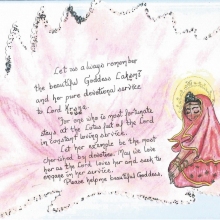 Let us always remember
the beautiful Goddess Laksmi
and her pure devotional service
to Lord
For one who is most fortunate
stays at the Lotus feet of the Lord
in constant loving service.
Let her example be the most
cherished by devotion. May we love
her as the Lord loves her and seek to
engage in her service.
Please help me beautiful Goddess.